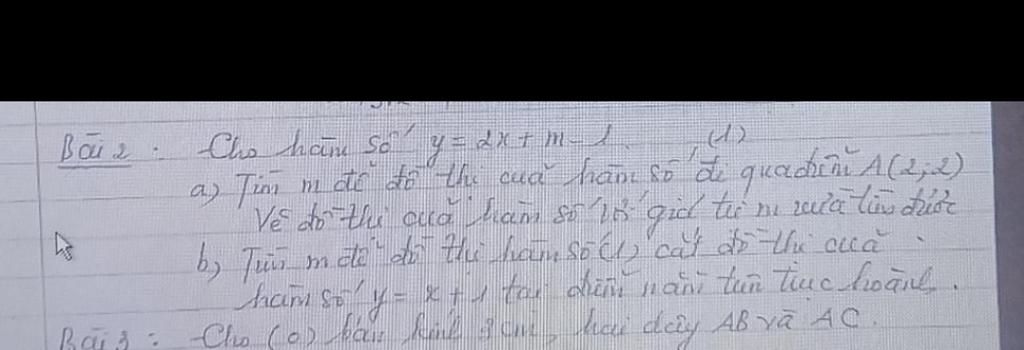 Bài 2 : Cho hàm số y = 2x + m - 1. , (1)
a) Tìm m để đồ thị của hàm số đi qua điểm A(2;2)
Vẽ đồ thị của hàm số với giá trị m vừa tìm được
b) Tìm m để đồ thị hàm số (1) cắt đồ thị của
hàm số y = x + 1 tại điểm nằm trên trục hoành.
Bài 3 : Cho (O) bán kính 3cm, hai dây AB và AC.